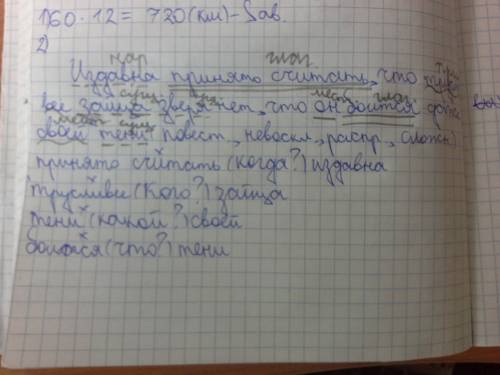 160 · 12 = 720 (км) - Sав.
2)
нар глаг.
Издавна принято считать, что
сущ. мест глаг
вее зайца зверя нет, что он боится даже
мест сущ
своей тени (повест., невоскл., распр., сложн.)
принято считать (когда?) издавна
трусливее (кого?) зайца
тени (какой?) своей
боится (что?) тени